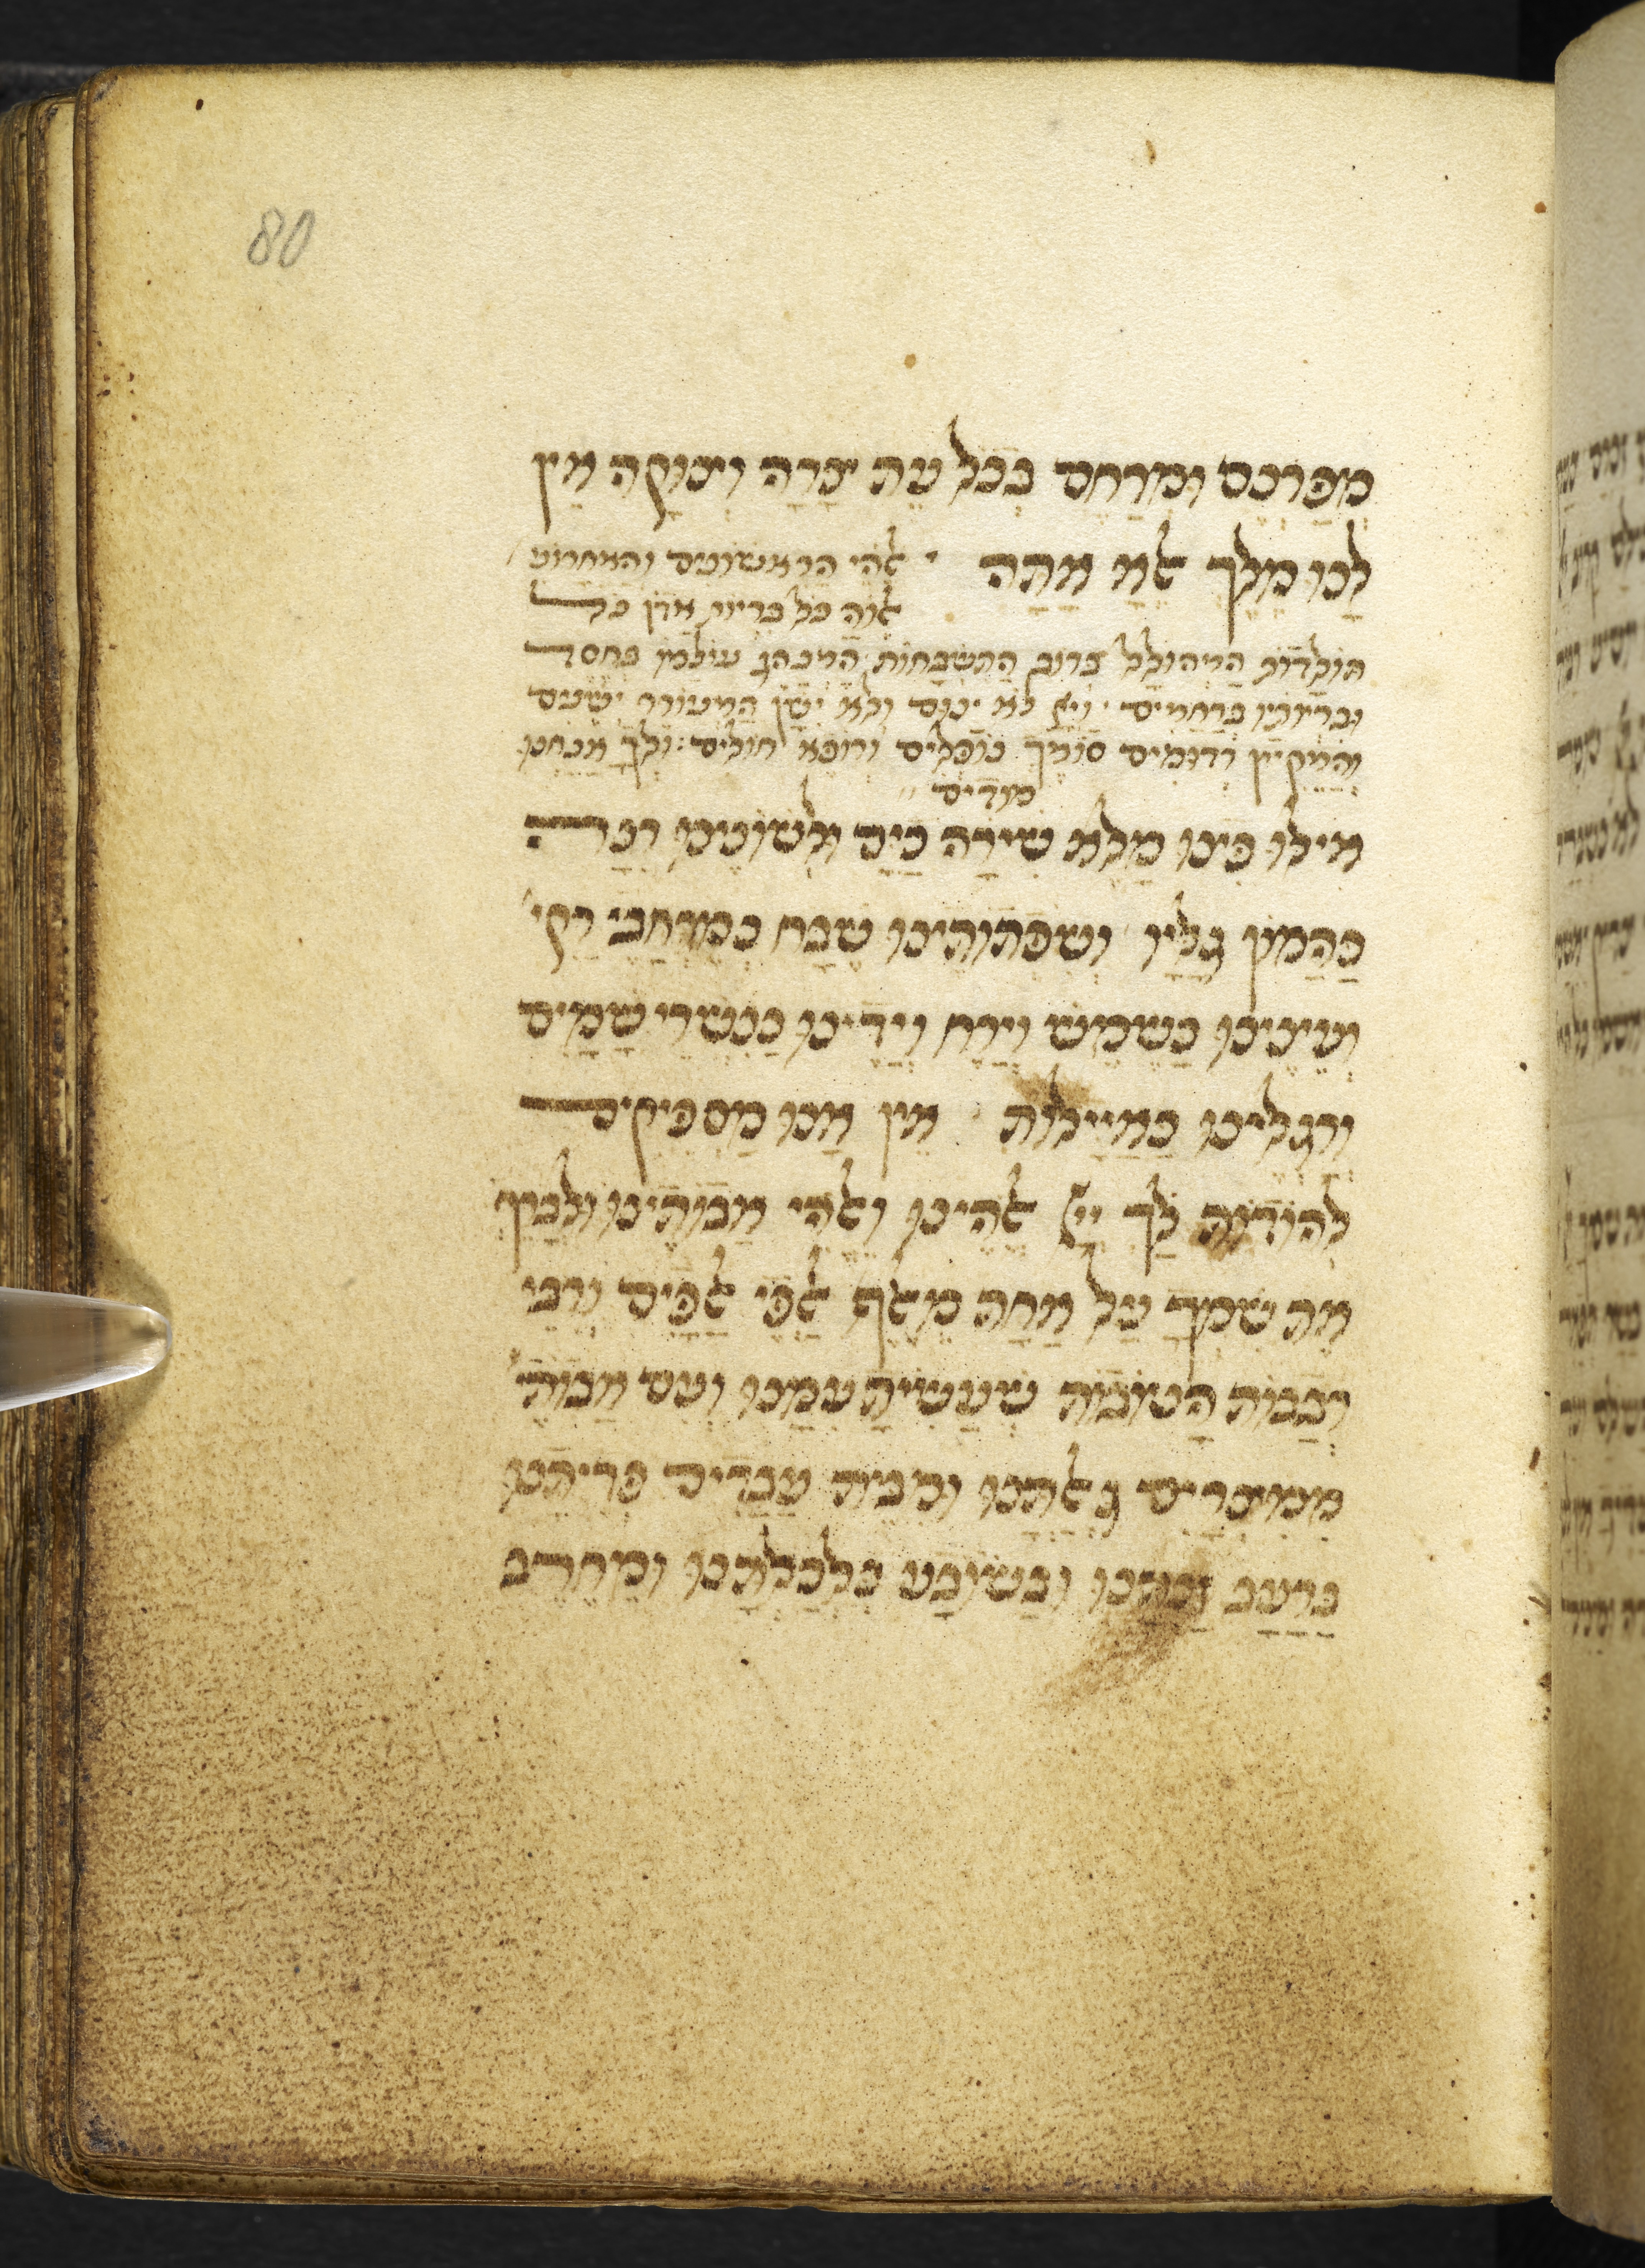 80
מפרנס ומרחם בכל עת צרה וצוקה אין
לנו מלך אלא אתה · אלהי הראשונים והאחרונ'
אלוה כל בריות אדון כל
תולדות המהולל ברוב התשבחות המנהג עולמו בחסד
ובריותיו ברחמים · וייי לא ינום ולא ישן המעורר ישנים
והמקיץ רדומים סומך נופלים ורופא חולים : ולך אנחנו
מודים
אילו פינו מלא שירה כים ולשונינו רנה
כהמון גליו ושפתותינו שבח כמרחבי רקי'
ועינינו כשמש וירח וידינו כנשרי שמים
ורגלינו כאיילות אין אנו מספיקים
להודות לך ייי אלהינו ואלהי אבותינו ולברך
את שמך על אחת מאלף אלפי אלפים ורבי
רבבות הטובות שעשית עמנו ועם אבותי'
ממצרים גאלתנו ומבית עבדים פדיתנו
ברעב זנתנו ובשובע כלכלתנו ומחרב